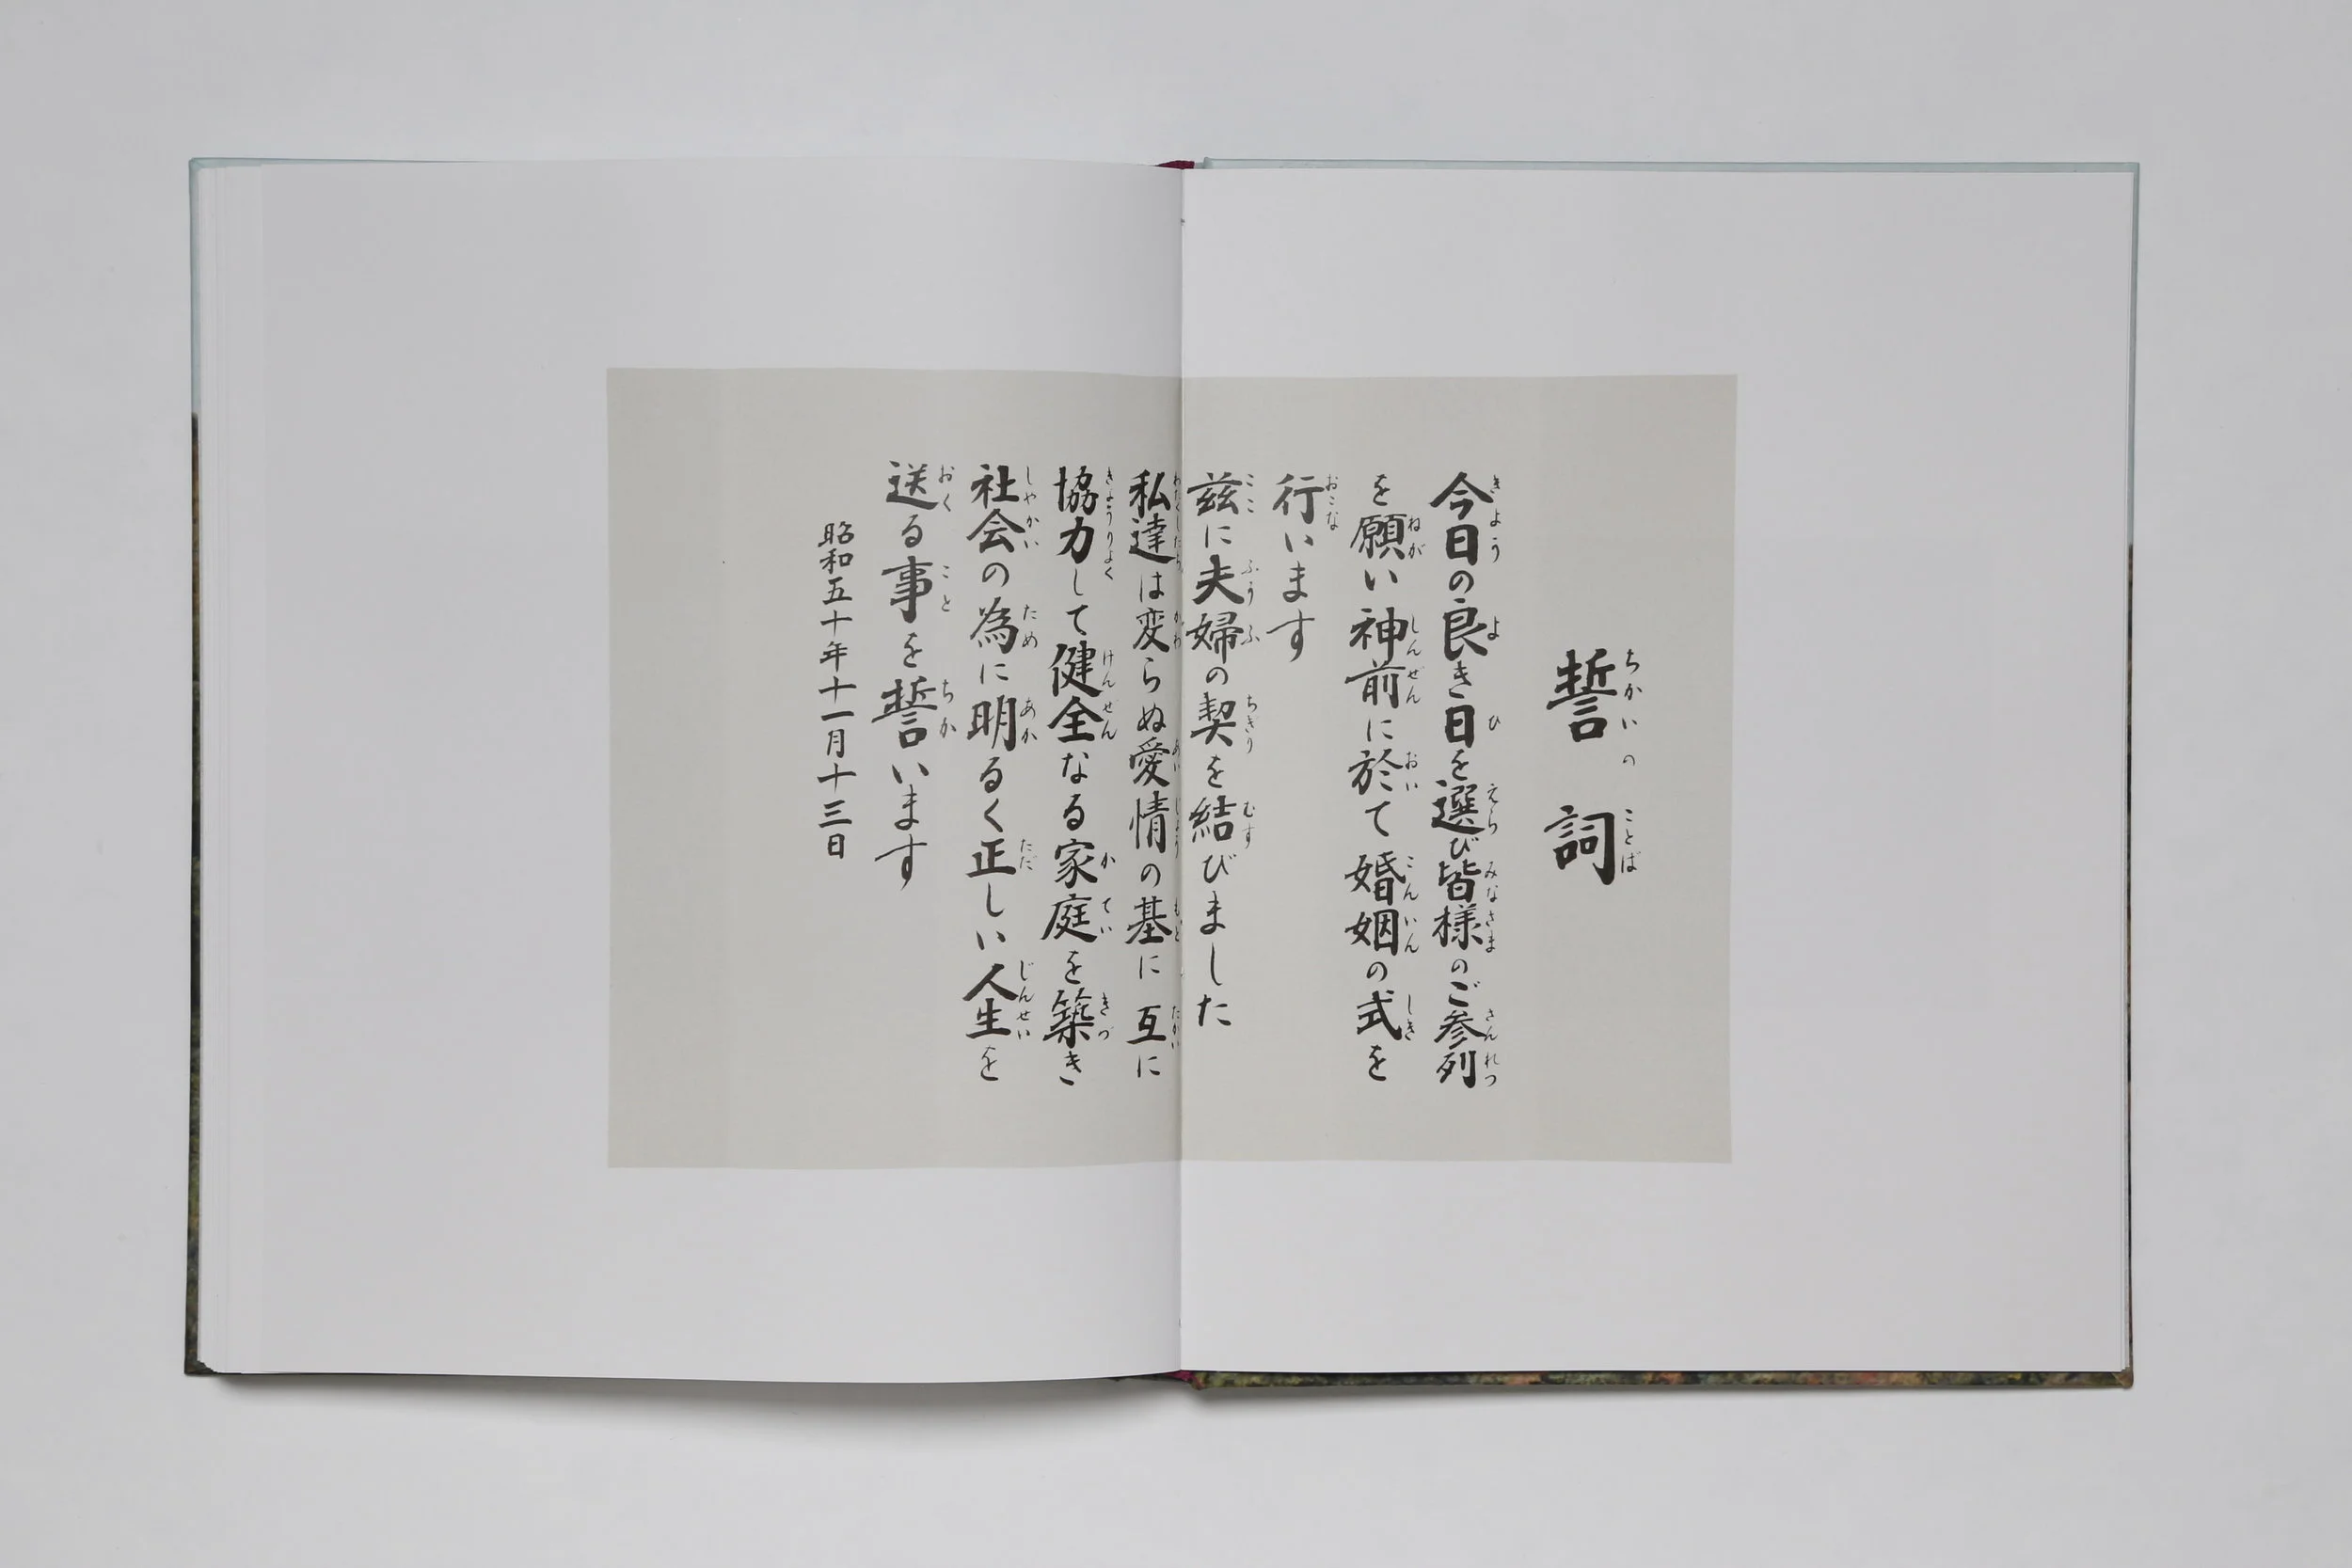 誓詞
今日の良き日を選び皆様のご参列
を願い神前に於て婚姻の式を
行います
茲に夫婦の契を結びました
私達は変らぬ愛情の基に互に
協力して健全なる家庭を築き
社会の為に明るく正しい人生を
送る事を誓います
昭和五十年十一月十三日